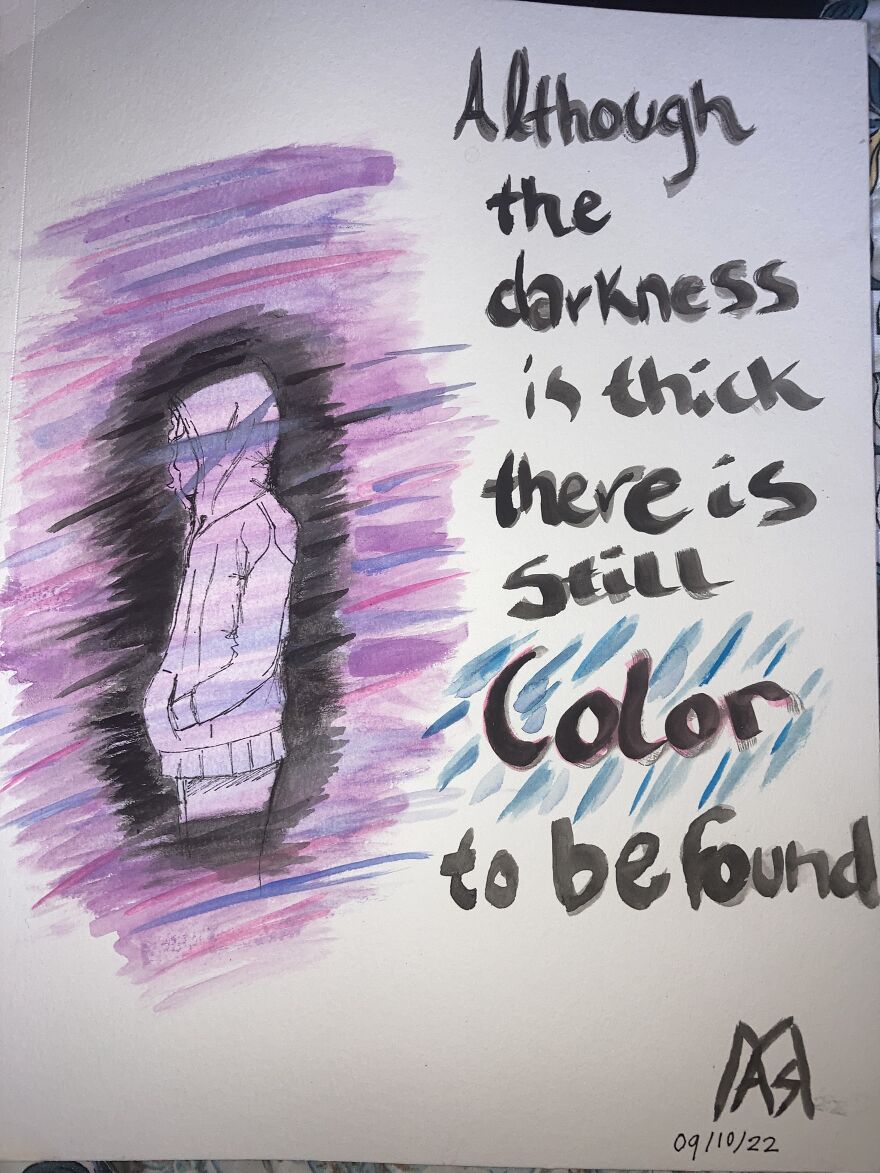 Although
the
darkness
is thick
there is
still
Color
to be found
09/10/22